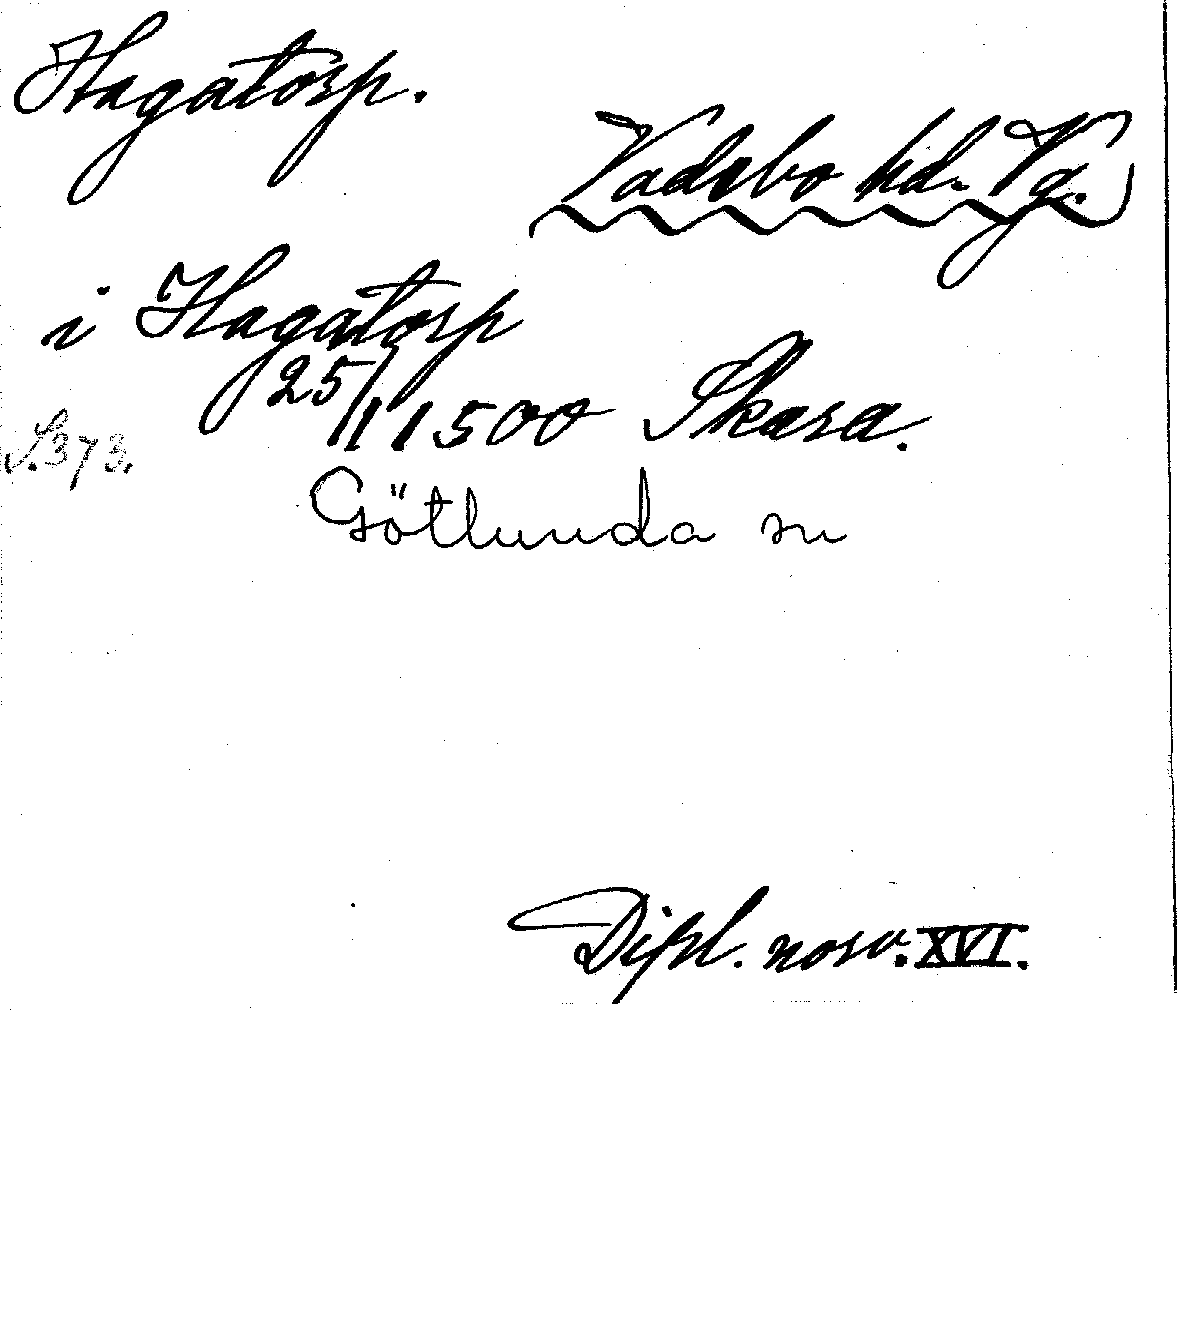 Hagatorp.
Vadsbo hd. Vg.
i Hagatorp
25/11 1500 Skara.
S. 373.
Götlunda sn
Dipl. norv. XVI.